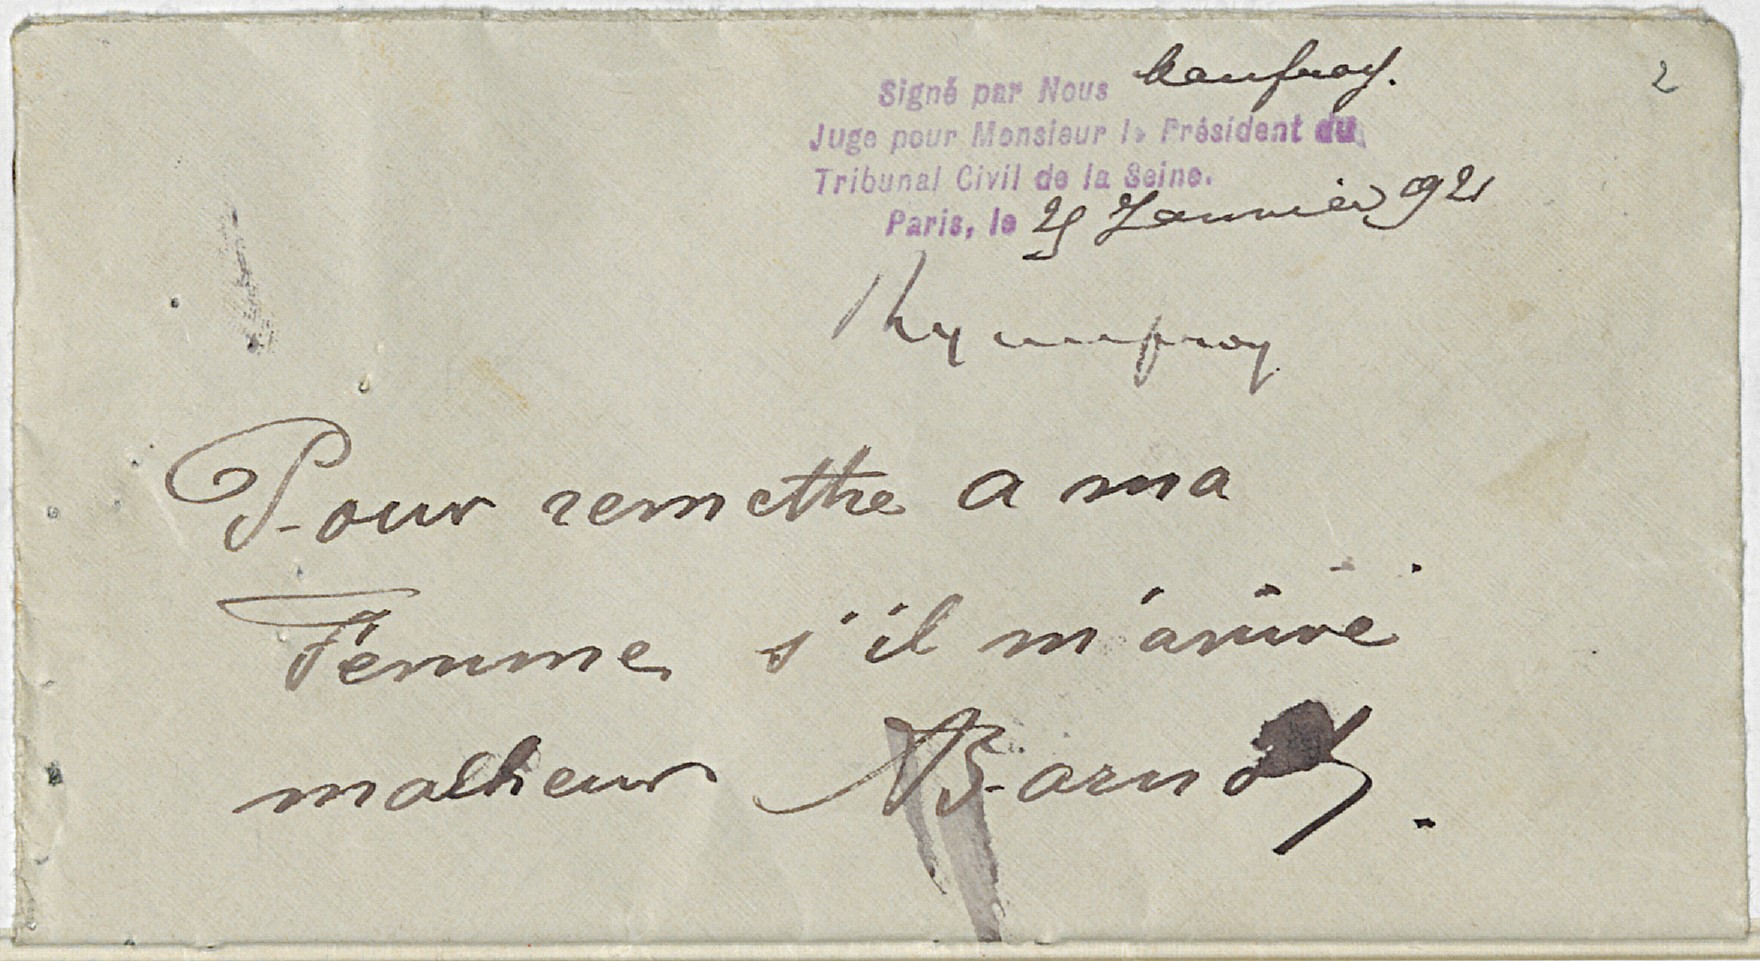 2
Signé par Nous
Juge pour Monsieur le Président du
Tribunal Civil de la Seine.
Paris, le 25 Janvier 921
Pour remettre a ma
Femme s'il m'arrive
malheur